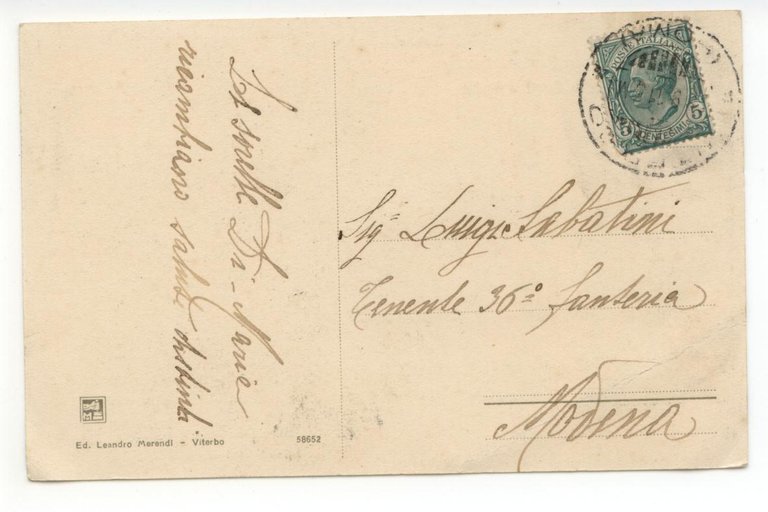 Le sorelle Di-Maria
ricambiano saluti distinti
POSTE ITALIANE
5 CENTESIMI 5
Sigr Luigi Sabatini
Tenente 36° fanteria
Modena
Ed. Leandro Merendi - Viterbo
58652